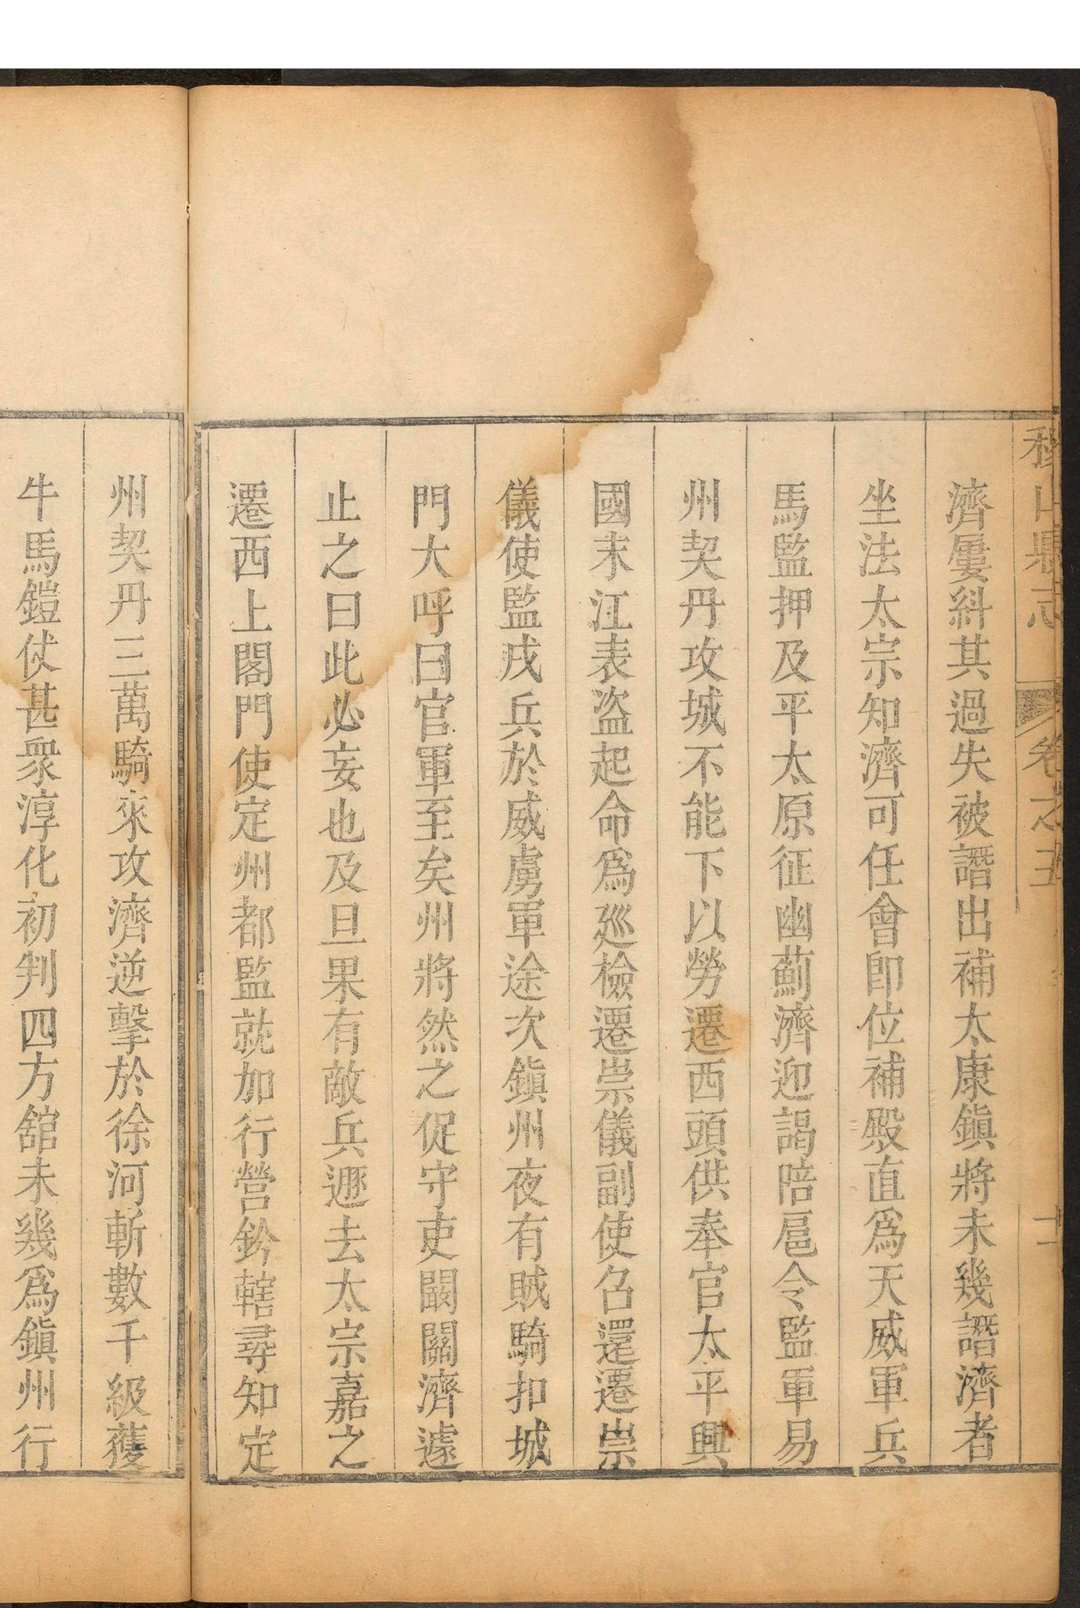 稷山縣志
卷之五
濟屢糾其過失被譖出補太康鎮將未幾譖濟者
坐法太宗知濟可任會即位補殿直為天威軍兵
馬監押及平太原征幽薊濟迎謁陪扈令監軍易
州契丹攻城不能下以勞遷西頭供奉官太平興
國末江表盜起命為廵檢遷崇儀副使召還遷崇
儀使監戍兵於威虜軍途次鎮州夜有賊騎扣城
門大呼曰官軍至矣州將然之促守吏闢關濟遽
止之曰此必妄也及旦果有敵兵遯去太宗嘉之
遷西上閤門使定州都監就加行營鈐轄尋知定
州契丹三萬騎來攻濟逆擊於徐河斬數千級獲
牛馬鎧仗甚衆淳化初判四方舘未幾為鎮州行